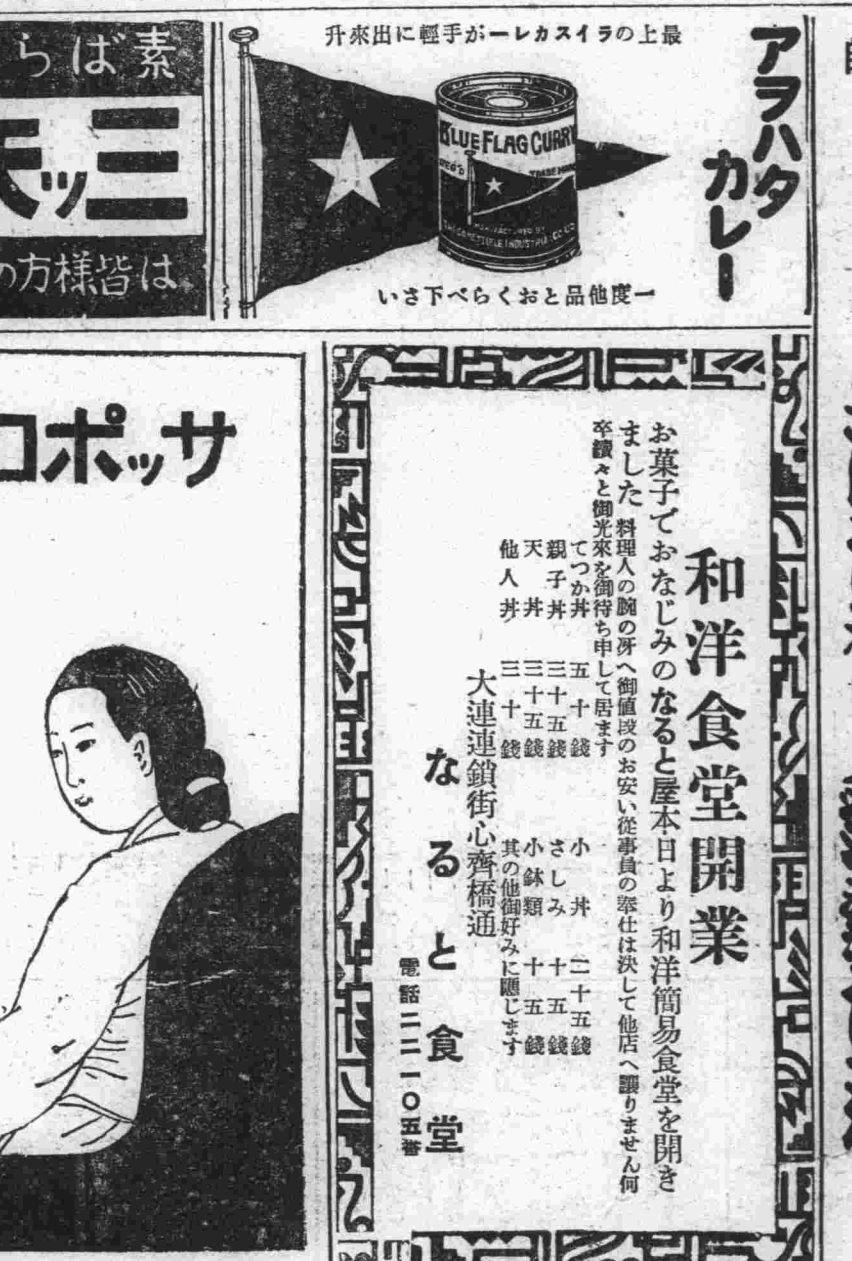 アヲハタ
カレー
最上のライスカレーが手輕に出來升
BLUE FLAG CURRY
REG'D TRADE MARK
MANUFACTURED BY
一度他品とおくらべ下さい
素ばら
三ッ矢
は皆様方の
サッポロ
和洋食堂開業
お菓子でおなじみのなると屋本日より和洋簡易食堂を開き
ました 料理人の腕の冴へ御値段のお安い從事員の奉仕は決して他店へ讓りません何
卒續々と御光來を御待ち申して居ます
てつか丼 五十錢
親子丼 三十五錢
天丼 三十五錢
他人丼 三十錢
小丼 二十五錢
さしみ 十五錢
小鉢類 十五錢
其の他御好みに應じます
大連連鎖街心齊橋通
なると食堂
電話二二一〇五番